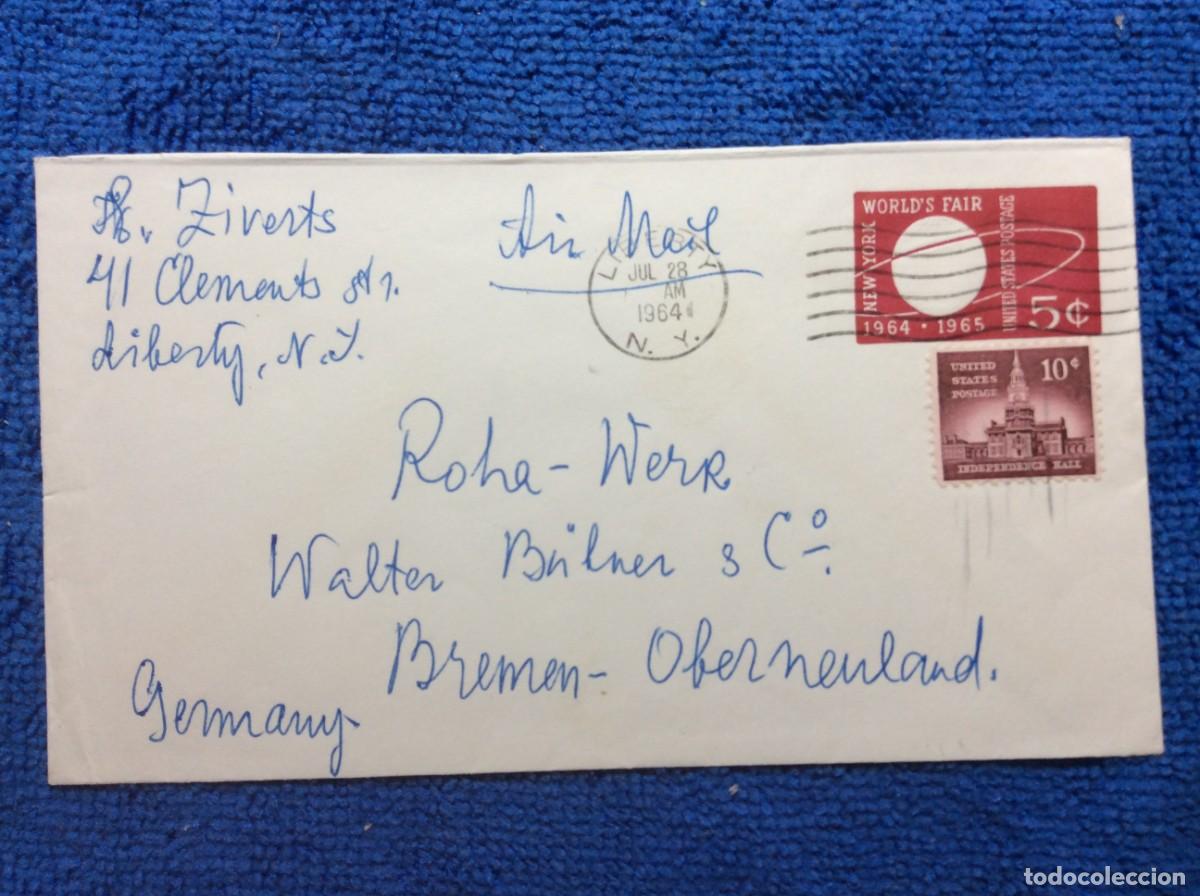 Ziverts
41 Clements Str.
Liberty, N.Y.
Air Mail
LIBERTY
JUL 28
AM
1964
N. Y.
NEW YORK
WORLD'S FAIR
UNITED STATES POSTAGE
1964 • 1965
5¢
UNITED
STATES
POSTAGE
10¢
INDEPENDENCE HALL
Roha-Werk
Walter Bühner & Cº.
Bremen-Oberneuland.
Germany
todocoleccion